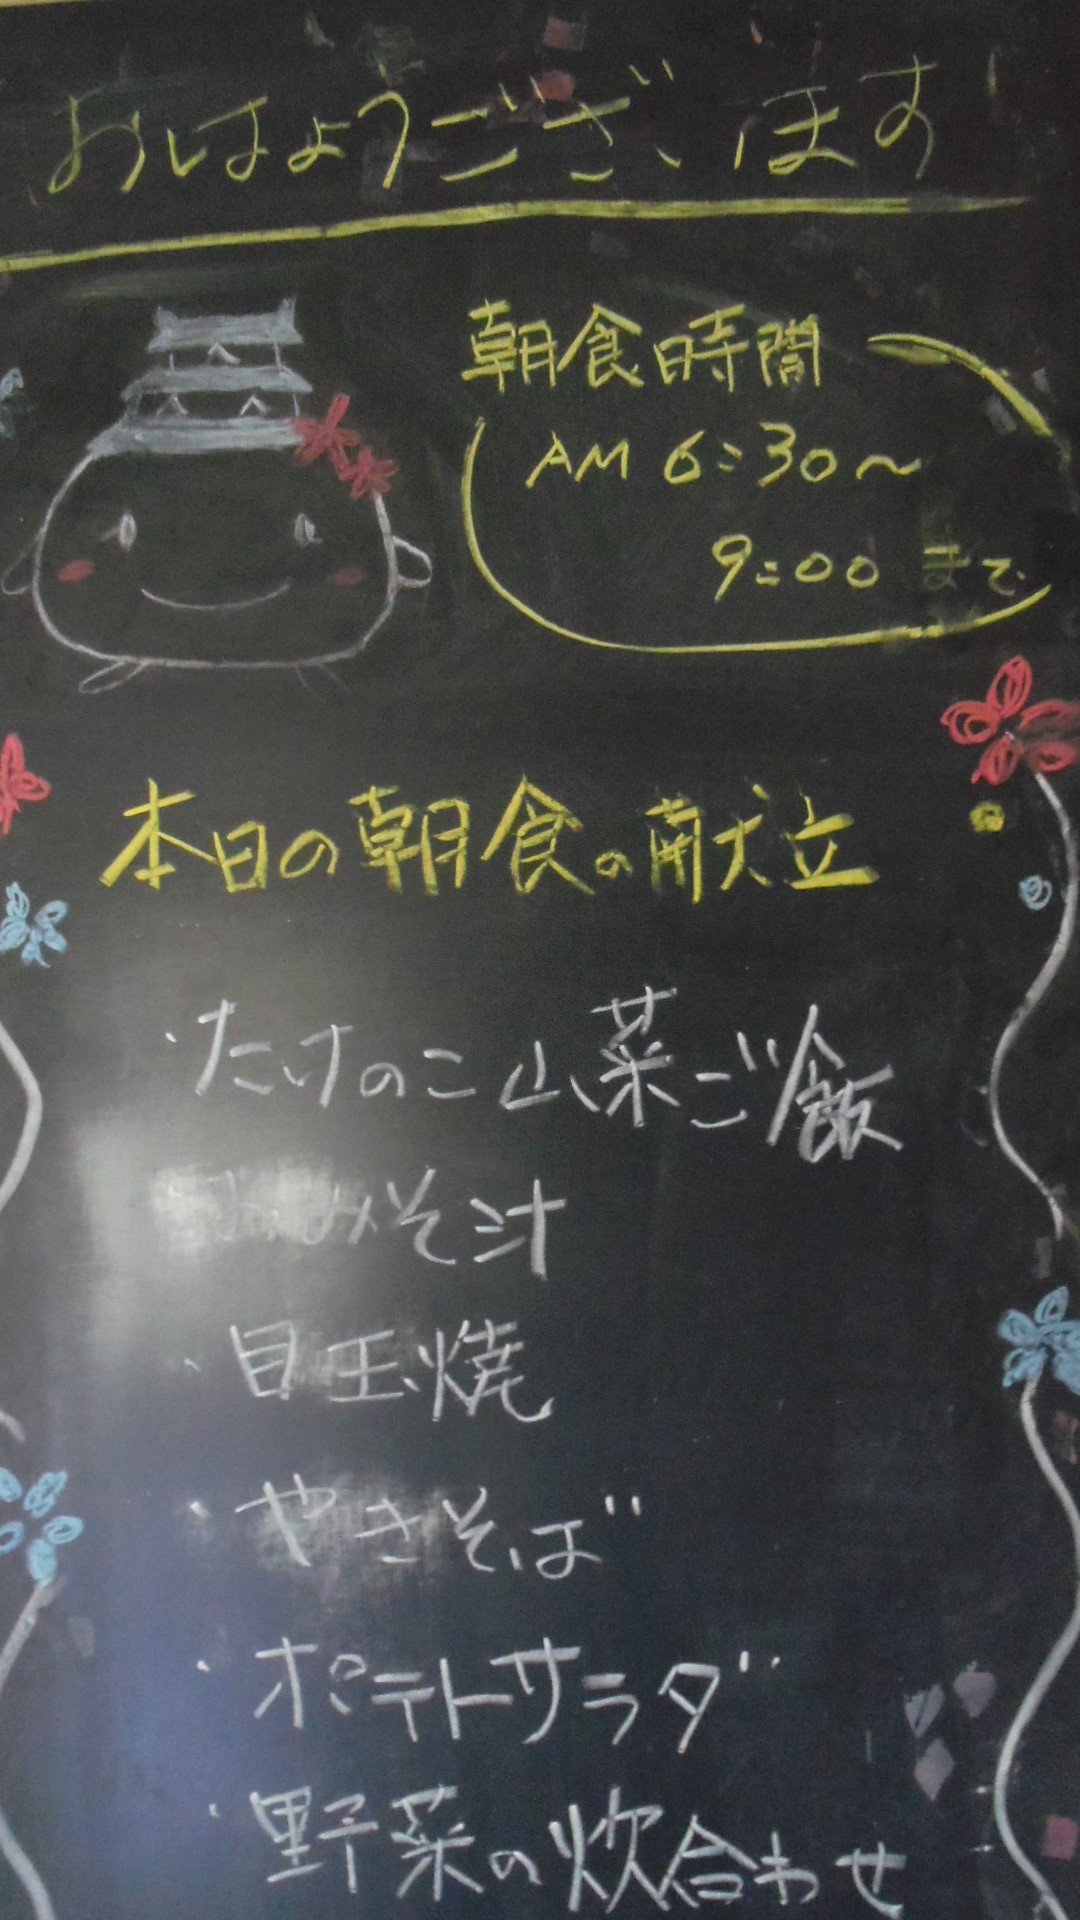 おはようございます
朝食時間
AM 6:30～
9:00 まで
本日の朝食の献立
・たけのこ山菜ご飯
おみそ汁
・目玉焼
・やきそば
・ポテトサラダ
・野菜の炊合わせ